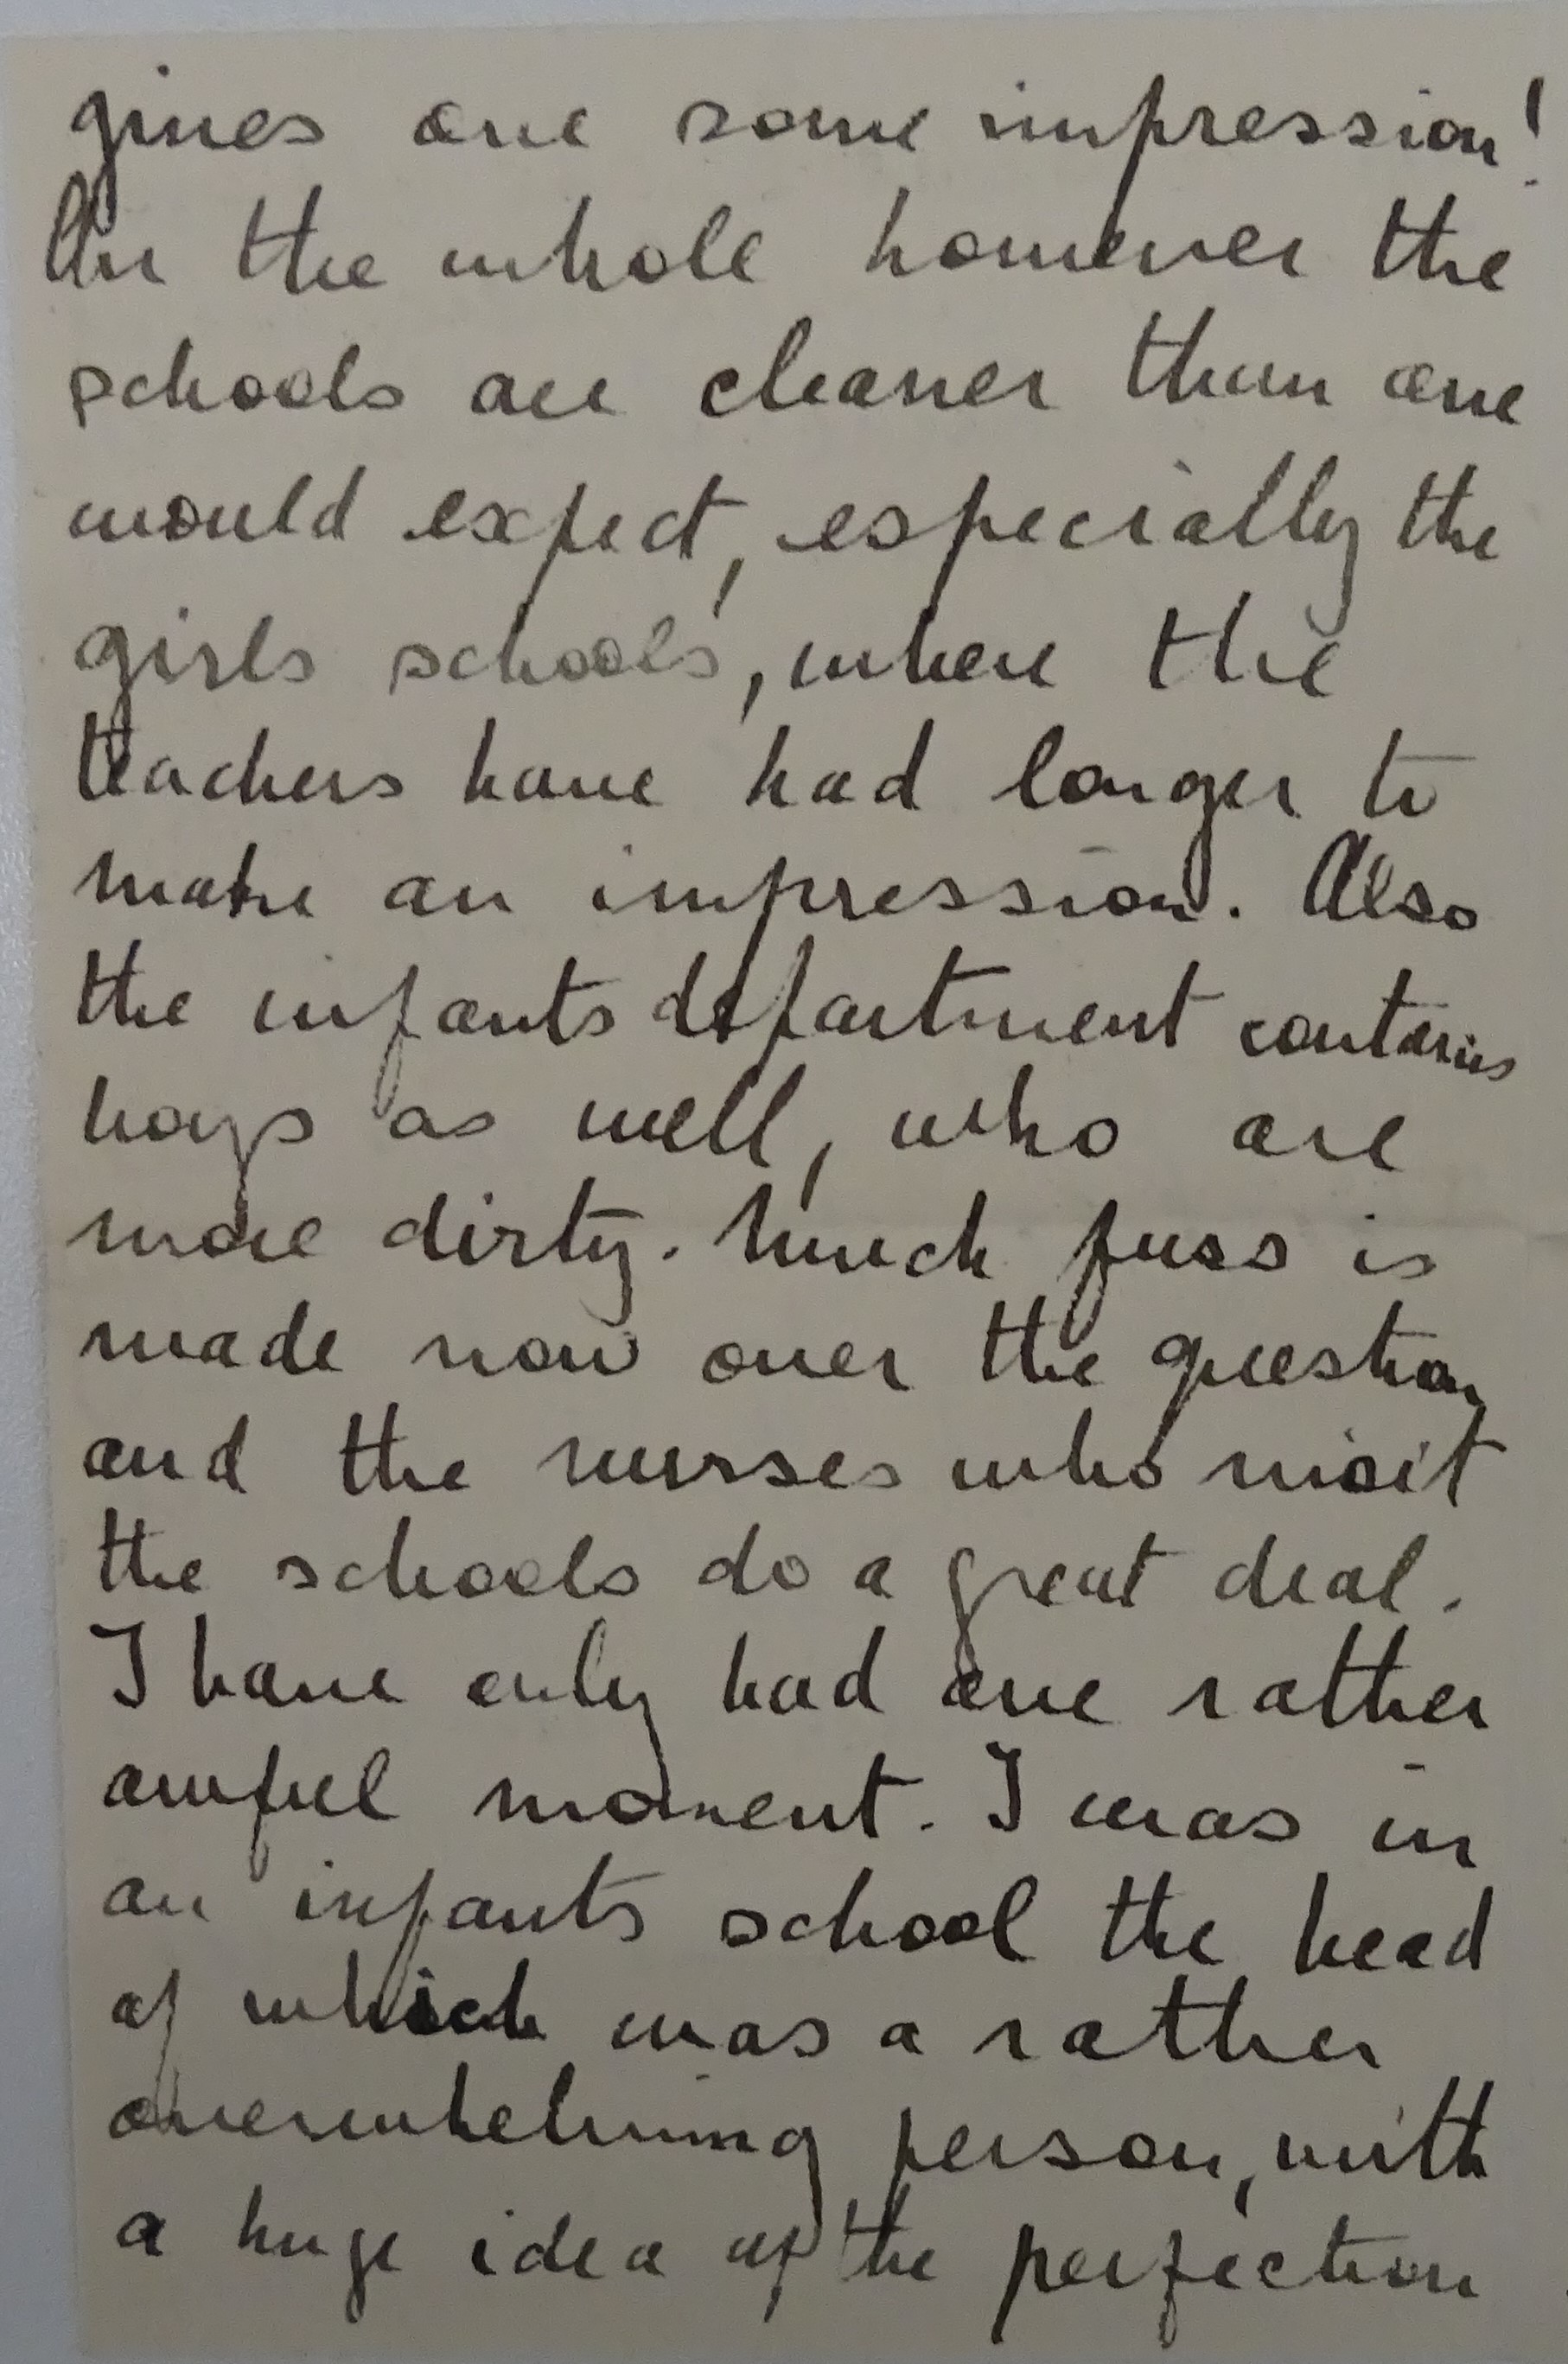 gives one some impression!
On the whole however the
schools are cleaner than one
would expect, especially the
girls schools', where the
teachers have had longer to
make an impression. Also
the infants department contains
boys as well, who are
more dirty. Much fuss is
made now over the question
and the nurses who visit
the schools do a great deal.
I have only had one rather
awful moment. I was in
an infants school the head
of which was a rather
overwhelming person, with
a huge idea of the perfection